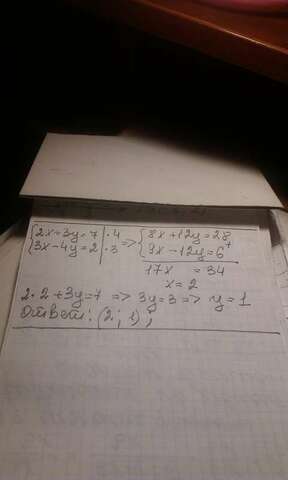 {2x+3y=7 | ·4 => {8x+12y=28
{3x-4y=2 | ·3 {9x-12y=6 +
17x = 34
x=2
2·2+3y=7 => 3y=3 => y=1
Ответ: (2; 1);